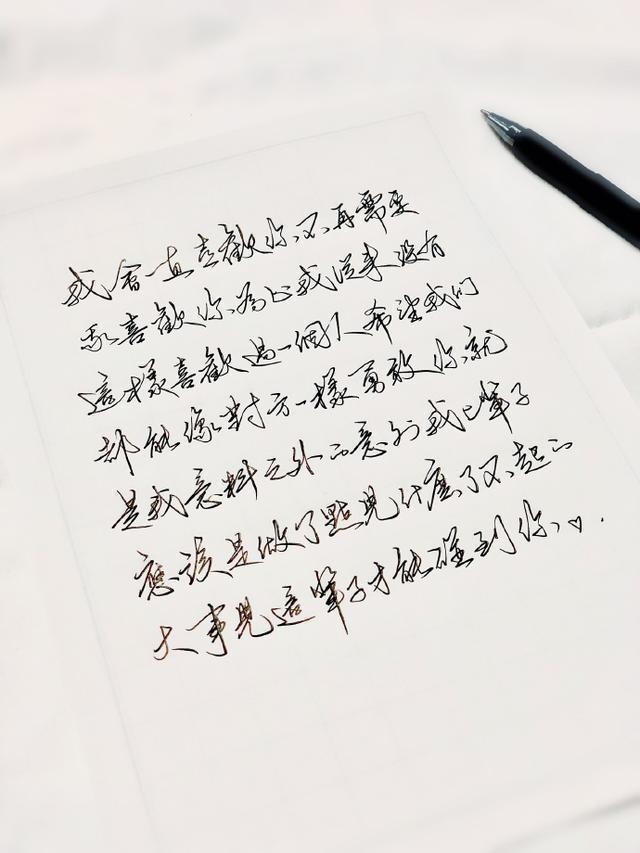 我會一直喜歡你,不再需要
我喜歡你,為止我從來沒有
這樣喜歡過一個人希望我們
都能像對方一樣勇敢你就
是我意料之外的意外我上輩子
應該是做了點兒什麼了不起的
大事兒這輩子才能碰到你、♡.